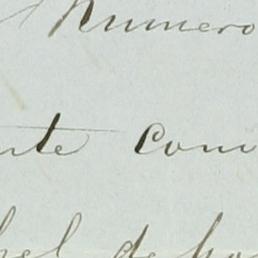 Numero
nte Com
hel de ho